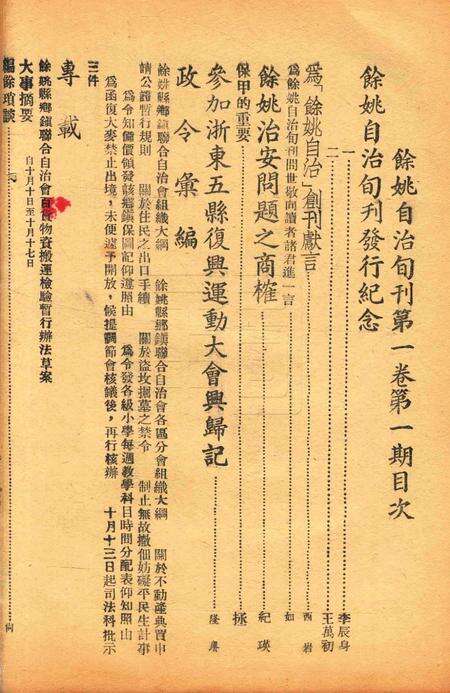 餘姚自治旬刊第一卷第一期目次
餘姚自治旬刊發行紀念
一……李辰身
二……王萬初
爲「餘姚自治」創刊獻言……西岩
爲餘姚自治旬刊問世敬向讀者諸君進一言……如
餘姚治安問題之商榷……紀瑛
保甲的重要……拯
參加浙東五縣復興運動大會興歸記……隆廖
政令彙編
餘姚縣鄉鎭聯合自治會組織大綱　餘姚縣鄉鎭聯合自治會各區分會組織大綱　關於不動產典賣申
請公證暫行規則　關於住民之出口手續　關於盜坟掘墓之禁令　制止無故撤佃妨礙平民生計事
爲令知備價領發該鄉鎭保圖記仰遵照由　爲令發各級小學每週敎學科目時間分配表仰知照由
爲函復大麥禁止出境，未便遽予開放，候提調節會核議後，再行核辦　十月十三日起司法科批示
三件
專載
餘姚縣鄉鎭聯合自治會百貨物資搬運檢驗暫行辦法草案
大事摘要　自十月十日至十月十七日
編餘瑣談